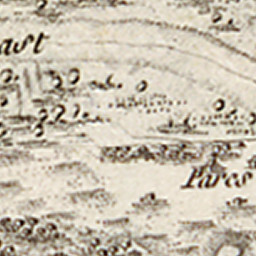 ast
Pares